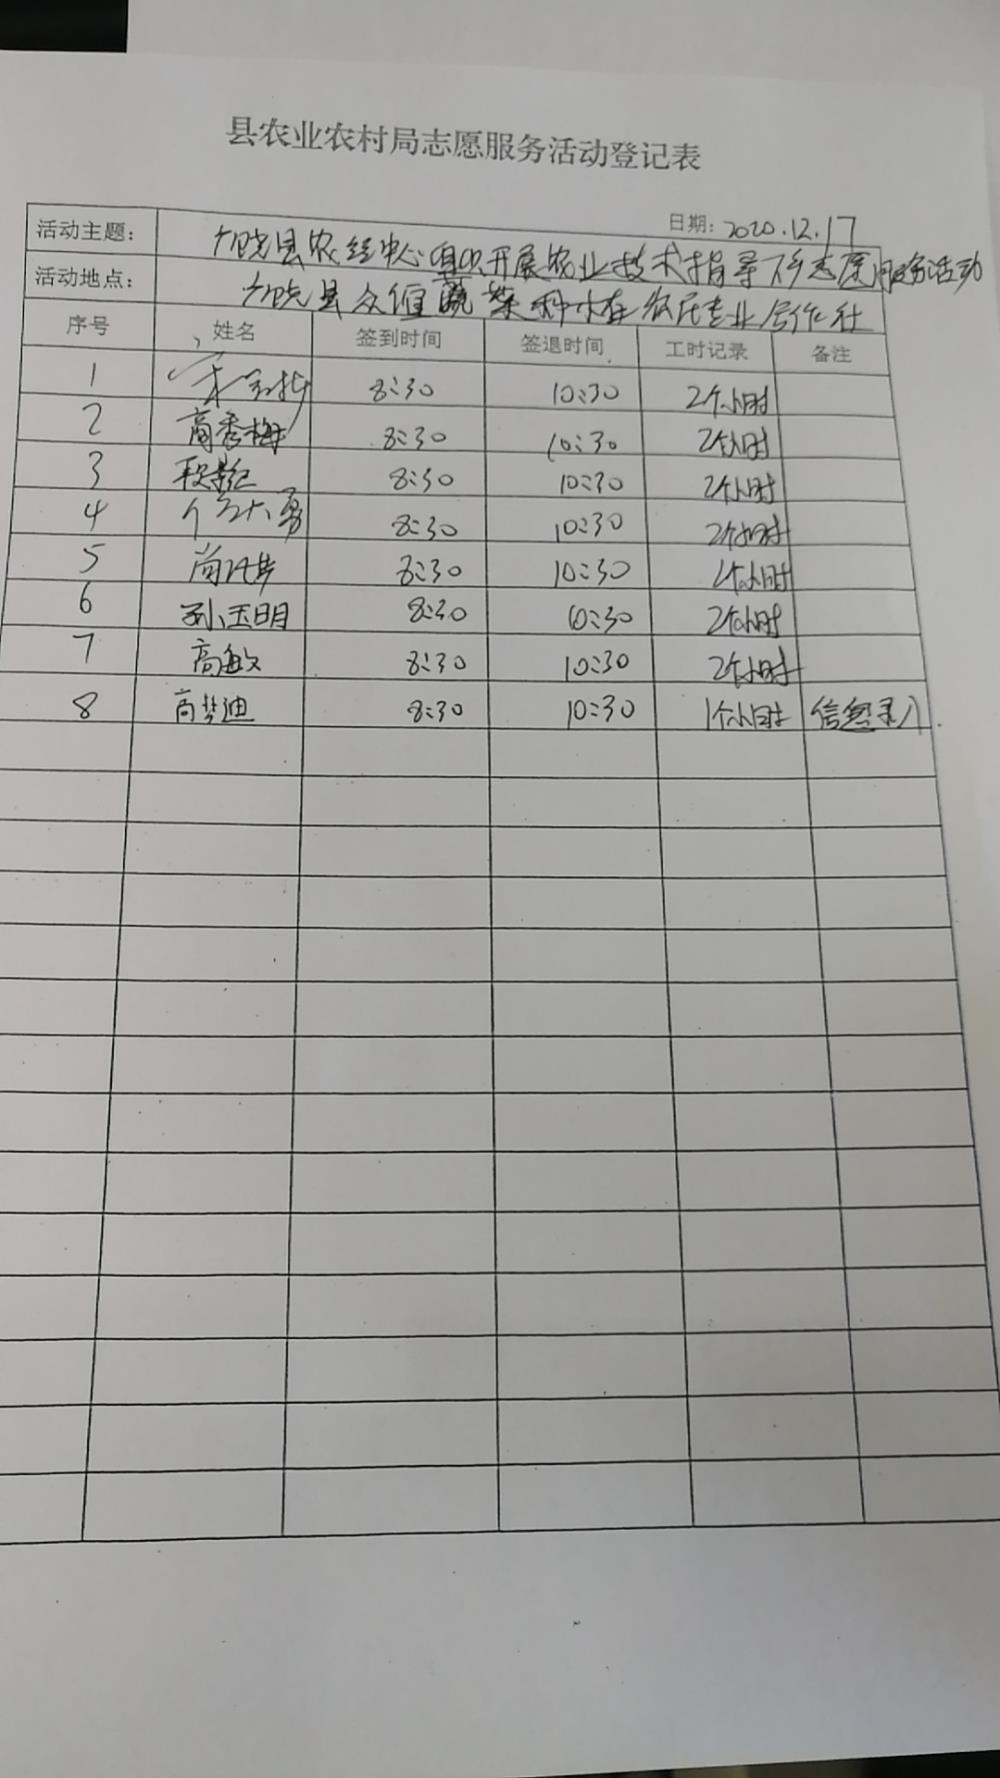 县农业农村局志愿服务活动登记表
日期: 2020.12.17
活动主题: 县农经中心组织开展农业技术指导下乡志愿服务活动
活动地点: 县众 蔬菜种 农民专业合作社
序号 姓名 签到时间 签退时间 工时记录 备注
1 8:30 10:30 2个小时
2 高秀梅 8:30 10:30 2个小时
3 8:30 10:30 2个小时
4 勇 8:30 10:30 2个小时
5 8:30 10:30 2个小时
6 孙玉明 8:30 10:30 2个小时
7 高敏 8:30 10:30 2个小时
8 高梦迪 8:30 10:30 1个小时 信息录入.